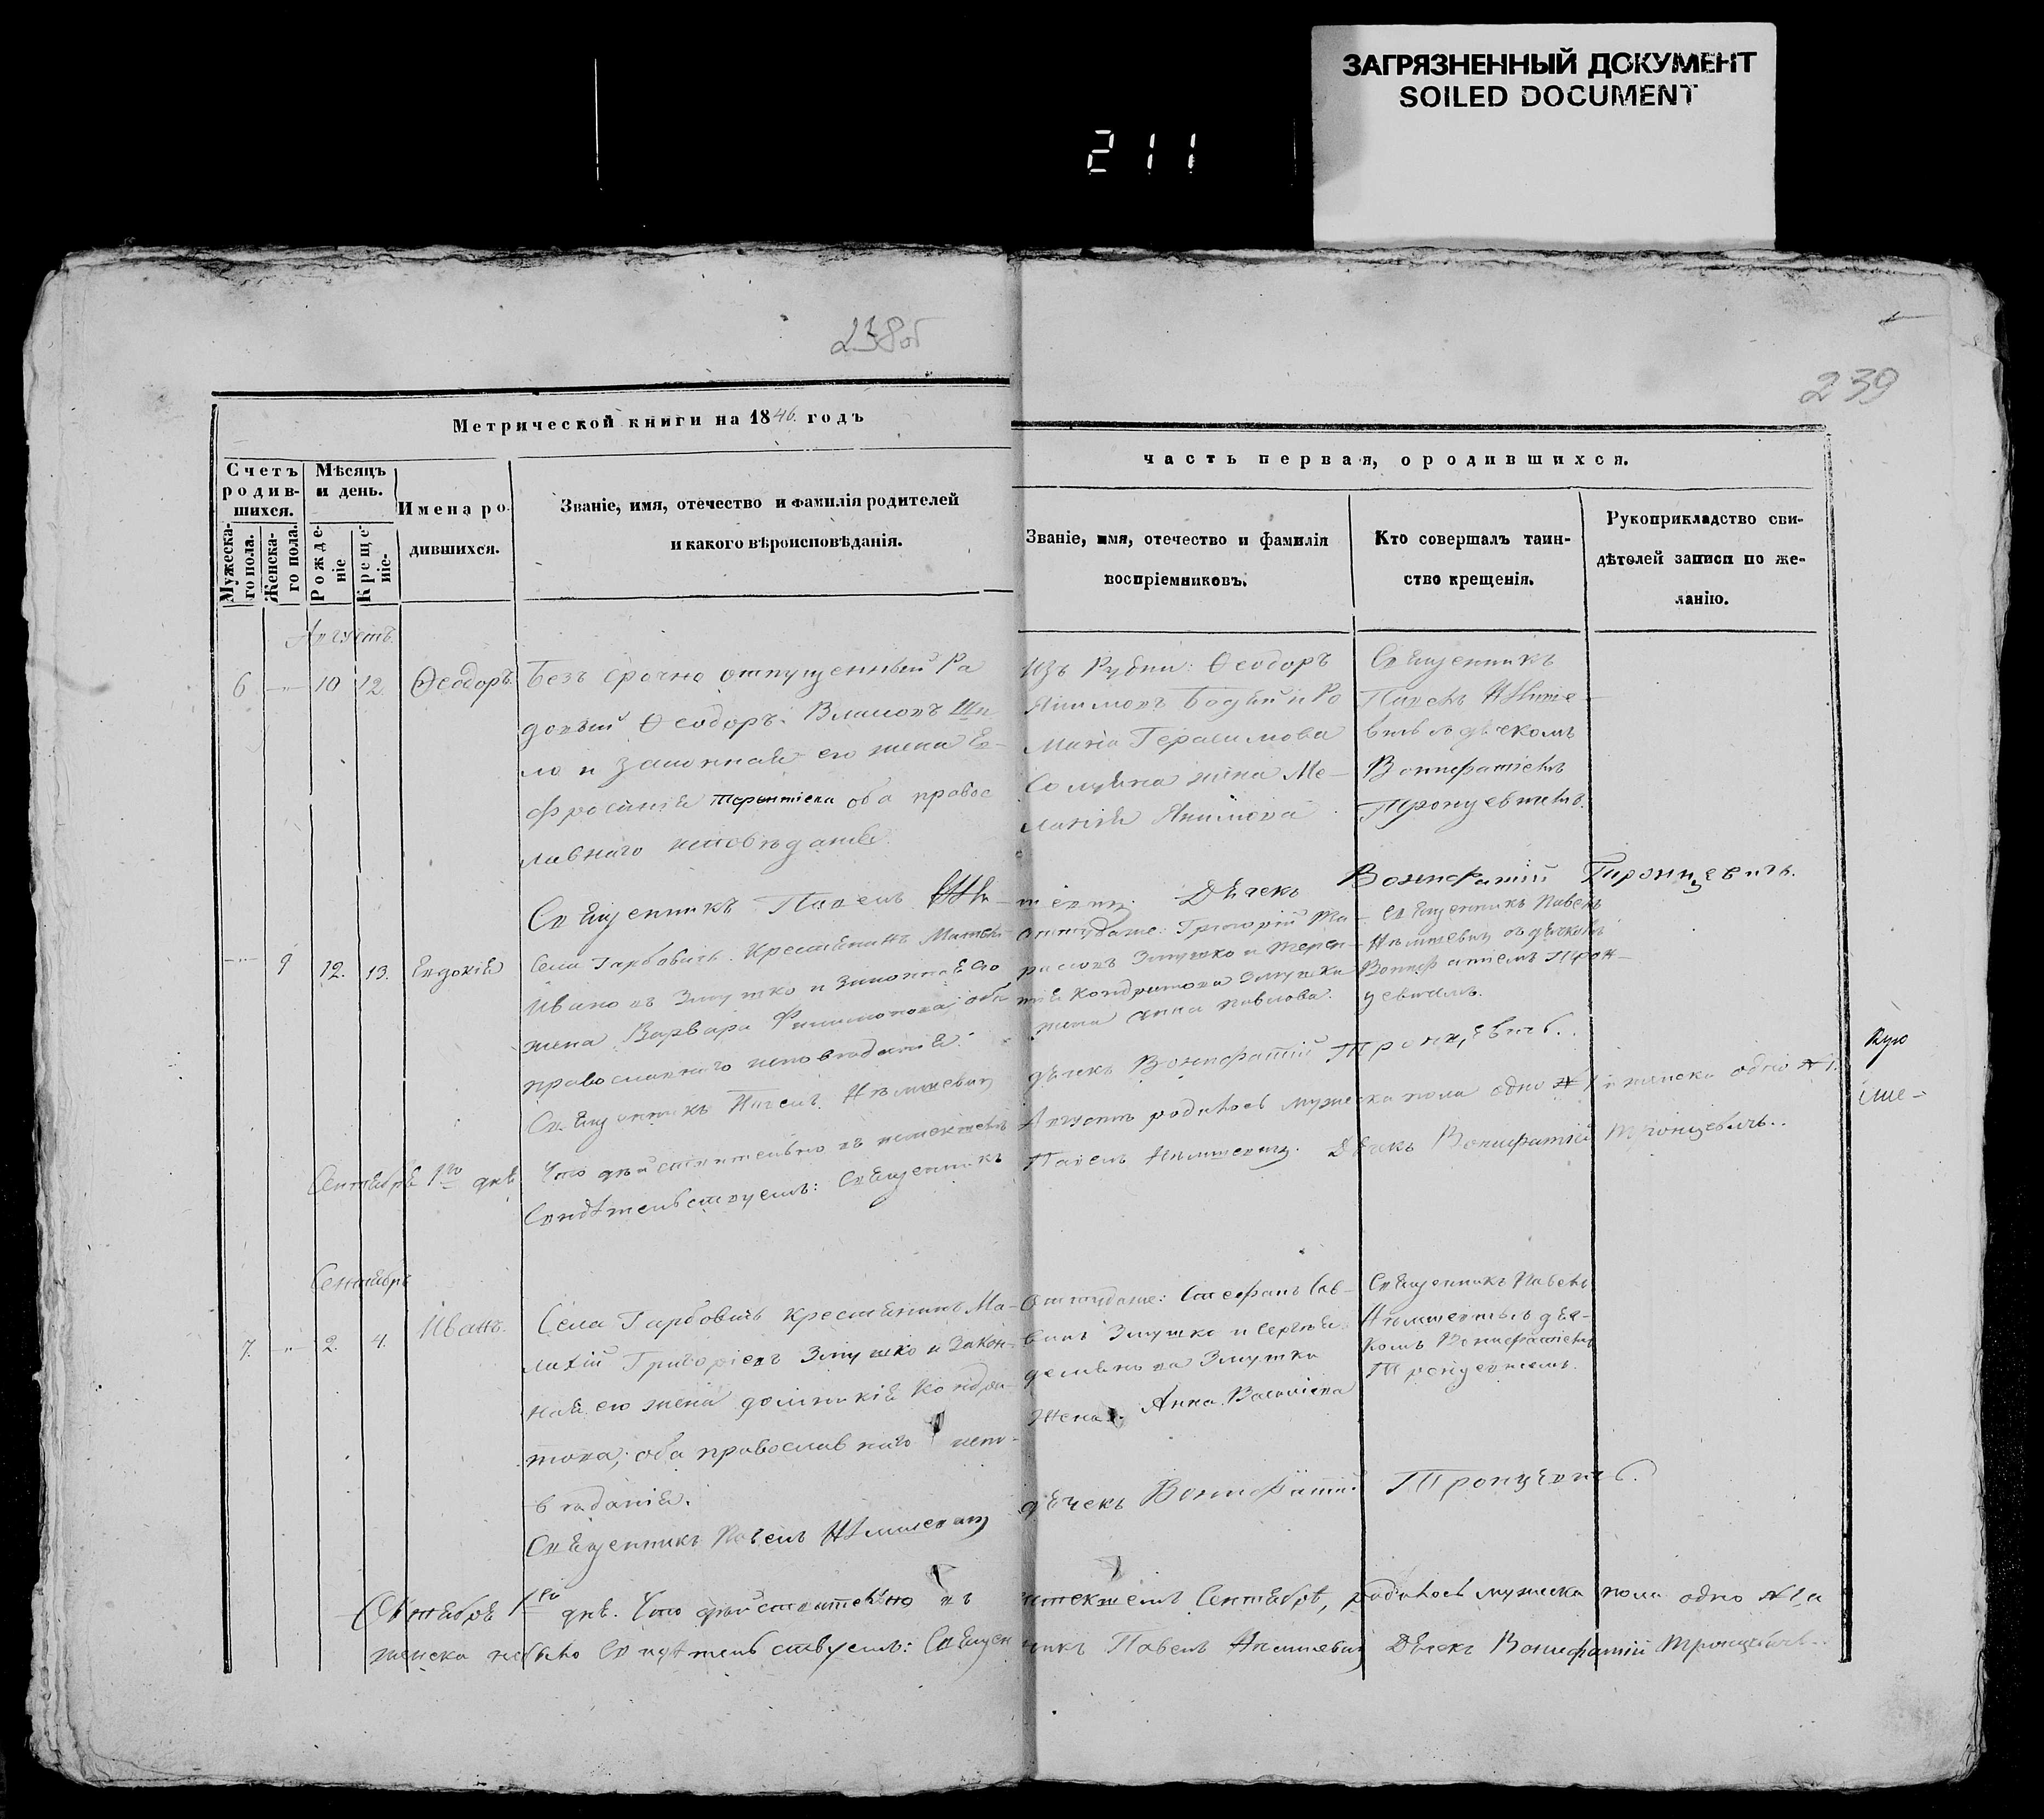 ЗАГРЯЗНЕННЫЙ ДОКУМЕНТ
SOILED DOCUMENT
211
238об
239
Метрической книги на 1846. годъ
часть первая, ородившихся.
Счетъ родив-шихся.
Мужеска-го пола.
Женска-го пола.
Мѣсяцъ и день.
Рожде-ніе
Креще-ніе.
Имена ро-
дившихся.
Званіе, имя, отечество и фамилія родителей
и какого вѣроисповѣданія.
Званіе, имя, отечество и фамилія
воспріемниковъ.
Кто совершалъ таин-
ство крещенія.
Рукоприкладство сви-
дѣтелей записи по же-
ланію.
Августъ.
6. -"- 10 12. Ѳеодоръ.
Безъ срочно отпущенный Ра
довый Ѳеодоръ Власовъ
ло и законная его жена Ев-
фросинія Терентіева оба правос
лавнаго исповѣданія.
Ѳеодоръ
Герасимова
жена Ме-
ланія Якимова
Священникъ
Павелъ
вичь съ дьячкомъ
Вонифатіемъ
Тронцевичемъ.
Священникъ Павелъ
Дьячекъ Вонифатій Тронцевичь.
-"- 9 12. 13. Евдокія
Села Гарбовичь Крестьянинъ
Ивановъ Змушко и законная его
жена Варвара Филимонова оба
православнаго исповѣданія.
Оттудаже: Григорій
расовъ Змушко и Терен-
тія Кондратова Змушки
жена Анна Павлова.
Священникъ Павелъ
съ дьячкомъ
Вонифатіемъ Трон-
цевичемъ.
Священникъ Павелъ
дьячекъ Вонифатій Тронцевичь.
Сентября 1го дня Что дѣйствительно въ истекшемъ Августѣ родилось мужеска пола одно № 1 и женска одно № 1.
Свидѣтельствуемъ: Священникъ Павелъ Дьячекъ Вонифатій Тронцевичь.
Сентябрь
7. -"- 2. 4. Иванъ.
Села Гарбовичь крестьянинъ Ма-
лахій Григоріевъ Змушко и закон-
ная его жена Домникія Кондра-
това; оба православнаго испо-
вѣданія.
Оттудаже: Стефанъ Сав-
винъ Змушко и Сергѣя
Демьянова Змушка
жена Анна Василіева
Священникъ Павелъ
дья-
комъ Вонифатіемъ
Тронцевичемъ.
Священникъ Павелъ
дьячекъ Вонифатій Тронцевичь.
Октября 1го дня. Что дѣйствительно въ истекшемъ Сентябрѣ, родилось мужеска пола одно № 1, а
женска небыло Свидѣтельствуемъ: Священникъ Павелъ Дьячекъ Вонифатій Тронцевичь.